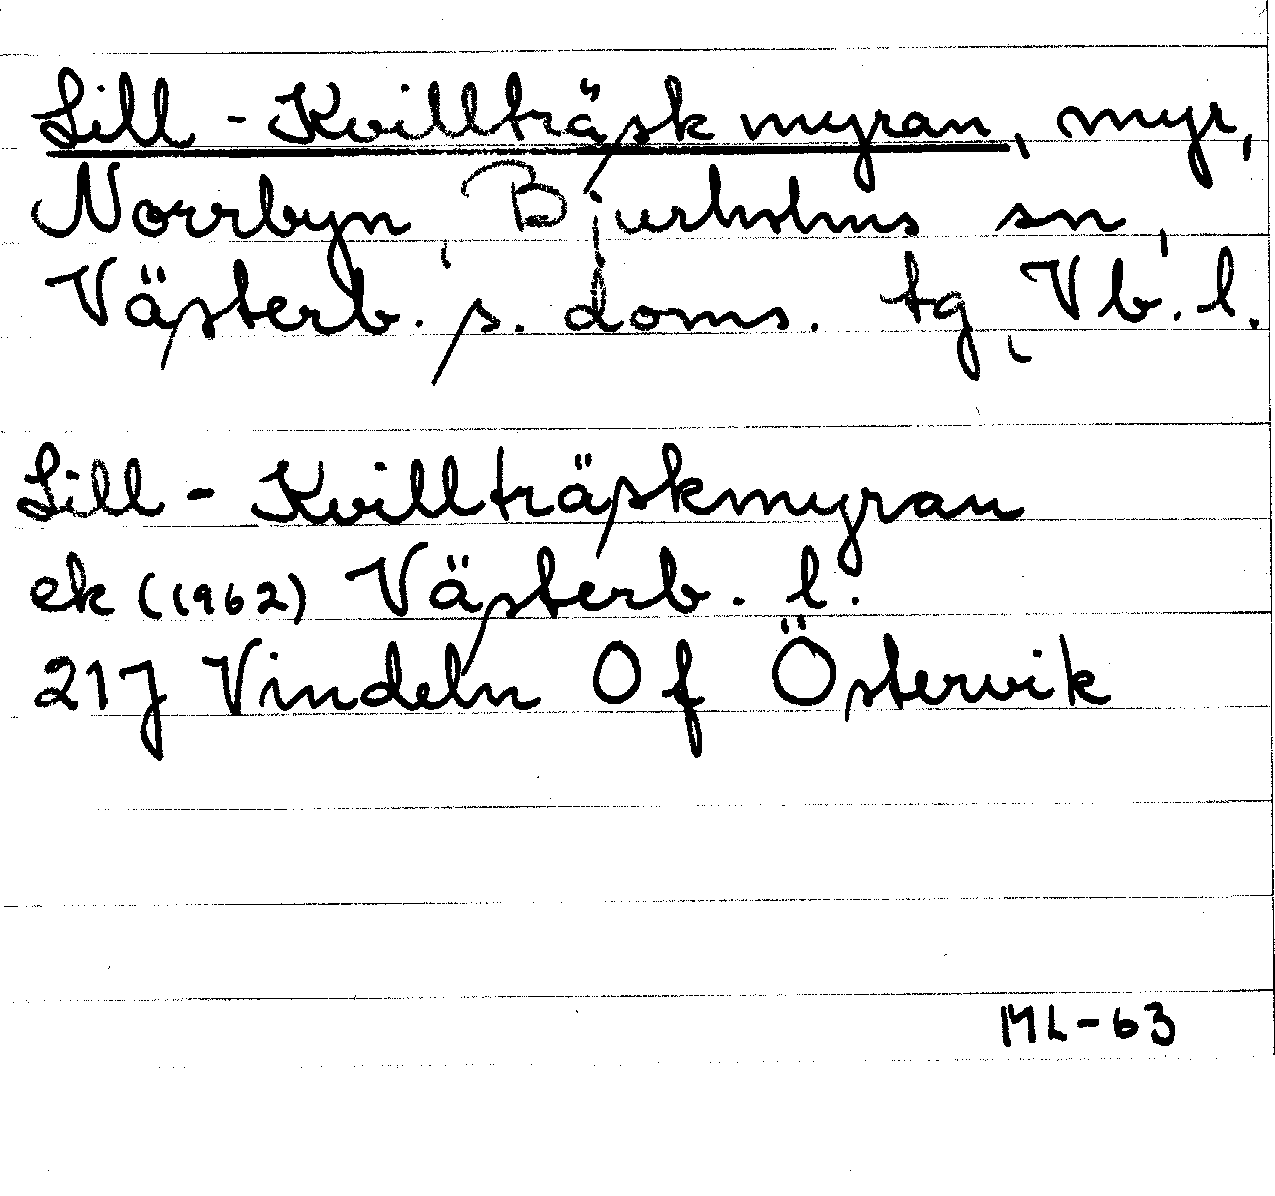 Lill-Kvillträskmyran, myr,
Norrbyn, Bjurholms sn,
Västerb. s. doms. tg, Vb. l.
Lill-Kvillträskmyran
ek (1962) Västerb. l.
21J Vindeln Of Östervik
ML-63